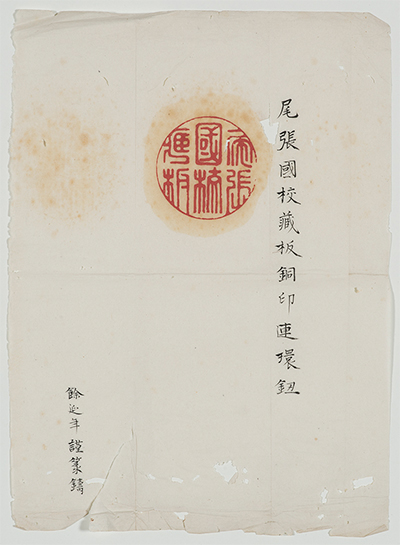 尾張國校藏板銅印連環鈕
尾張
國校
藏板
餘延年謹篆鑄